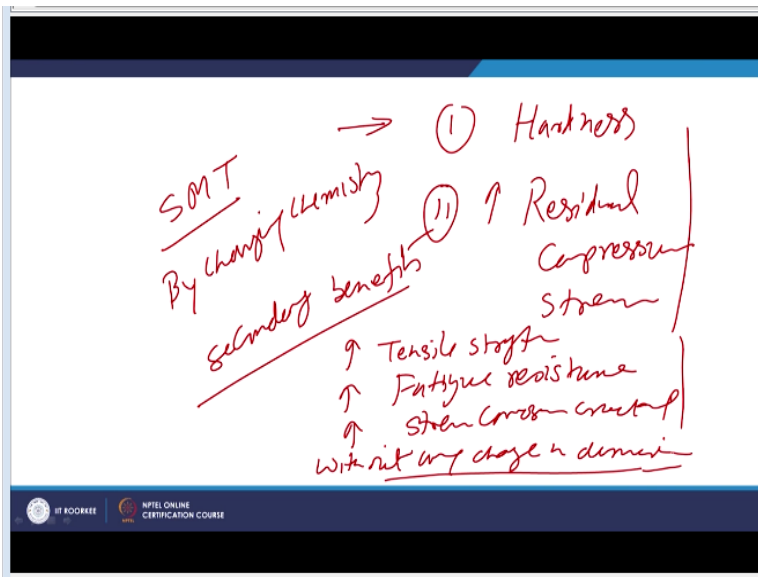 SMT
By changing chemistry
secondary benefits
→ (I) Hardness
(II) ↑ Residual
Compressive
Stress
↑ Tensile strength
↑ Fatigue resistance
↑ Stress corrosion cracking
without any change in dimension
IIT ROORKEE
NPTEL ONLINE
CERTIFICATION COURSE